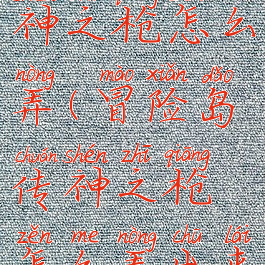 神之枪怎么
nòng mào xiǎn dǎo
弄(冒险岛
chuán shén zhī qiāng
传神之枪
zěn me nòng chū lái